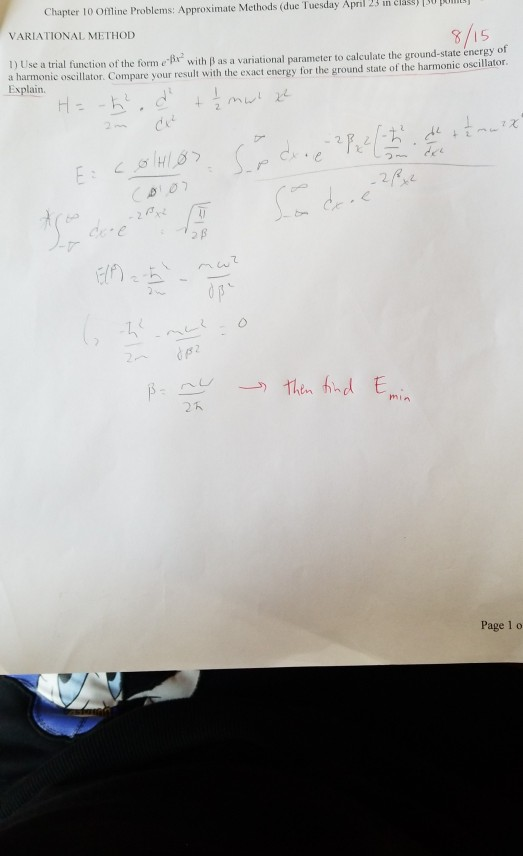 Chapter 10 Offline Problems: Approximate Methods (due Tuesday April 23 in class) [30 points]
VARIATIONAL METHOD
8/15
1) Use a trial function of the form e^-βx² with β as a variational parameter to calculate the ground-state energy of
a harmonic oscillator. Compare your result with the exact energy for the ground state of the harmonic oscillator.
Explain.
H = -ħ²/2m · d²/dx² + 1/2 mω² x²
E = <Ø|H|Ø>/<Ø|Ø> = ∫-∞^∞ dx·e^-2βx² [-ħ²/2m · d²/dx² + 1/2 mω²x² / ∫-∞^∞ dx·e^-2βx²
*∫-∞^∞ dx·e^-2βx² = √π/2β
E(β) = -ħ²/2m - mω²/8β²
-ħ²/2m - mω²/8β² = 0
β = mω/2ħ → then find E min
Page 1 o